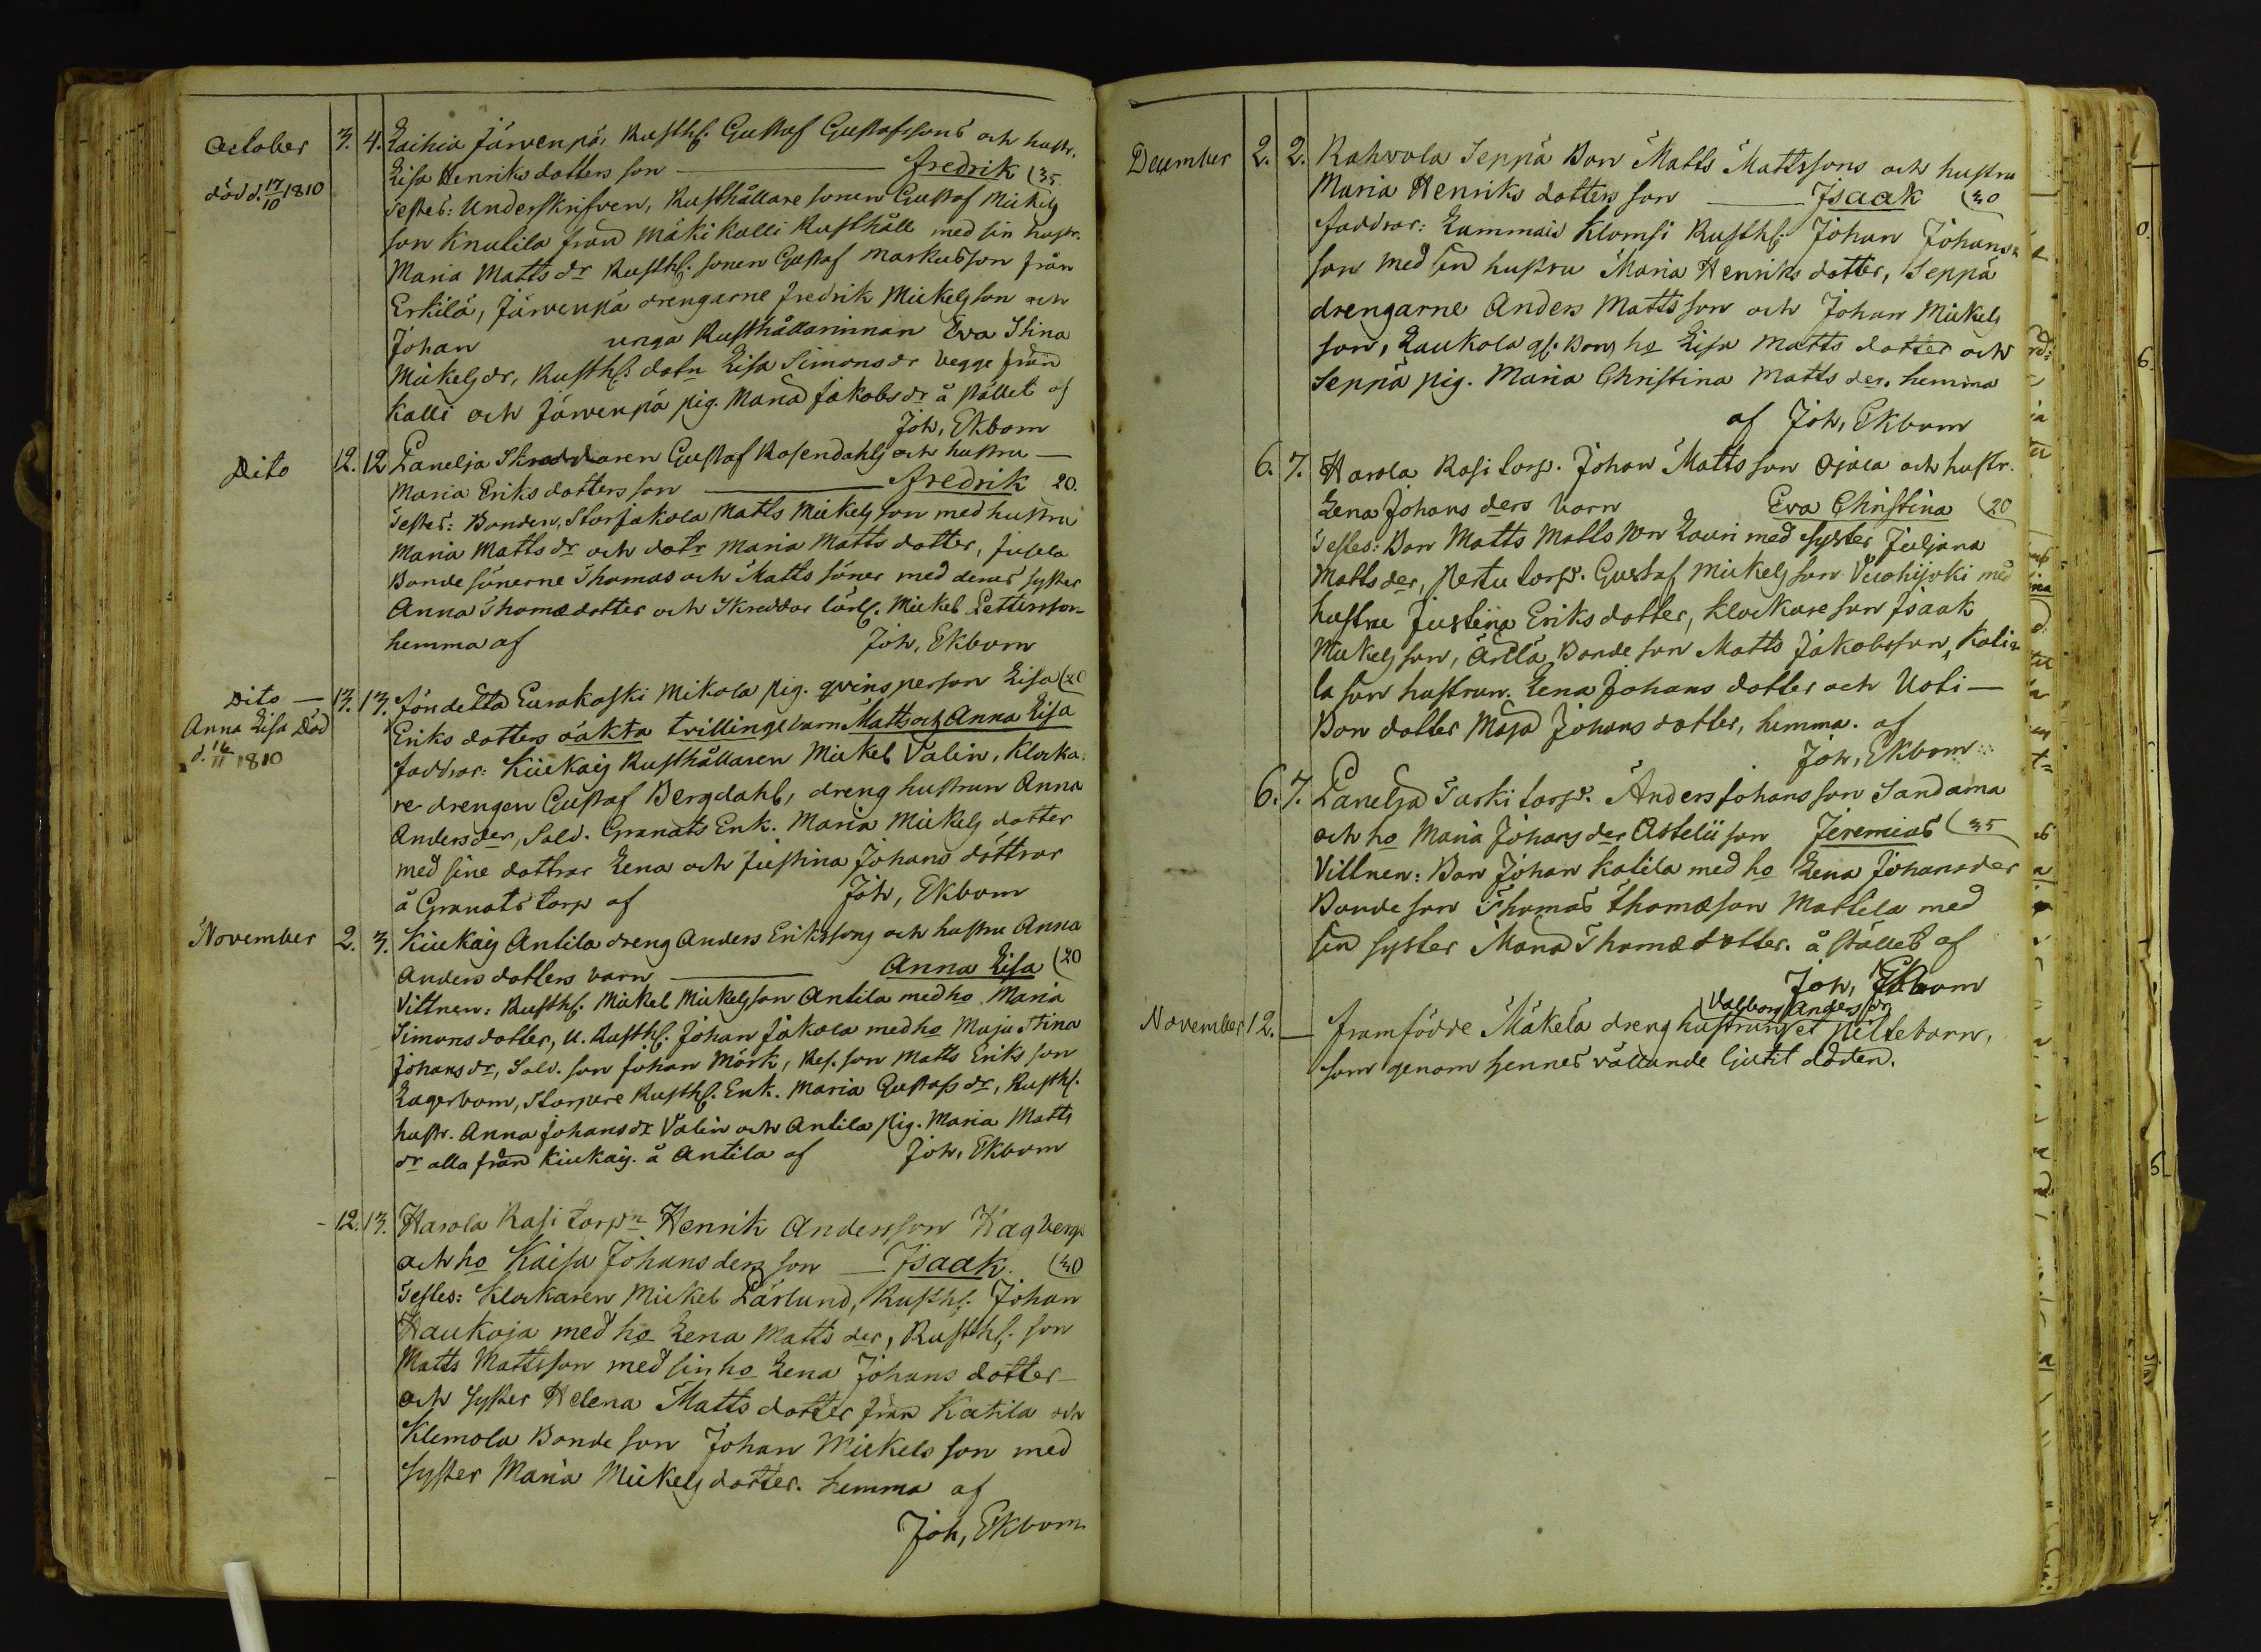 October 3. 4. Laihia Järvenpä, Rusth. Gustaf Gustafssons och hustr.
Lisa Henriks dotters son — Fredrik (35
död d. 17/10 1810
Testes: Underskrifven, Rusthållare sonen Gustaf Mickels
son Knutila från Mäki kalli Rusthåll med sin hustr.
Maria Matts dr Rusth. sonen Gustaf Markusson från
Erkilä, Järvenpä drengarne Fredrik Mickelsson och
Johan unga Rusthållarinnan Eva Stina
Mickels dr, Rusth. dotn Lisa Simons dr begge från
Kalli och Järvenpä pig. Maria Jakobs dr å stället af
Joh, Ekbom
Dito 12. 12 Panelja Skreddaren Gustaf Rosendahls och hustru —
Maria Eriks dotters son — Fredrik 20.
Testes: Bonden, Storjakola Matts Mickelsson med hustru
Maria Matts dr och dotr Maria Matts dotter, Jusela
Bonde sönerne Thomas och Matts söner med deras syster
Anna Thomædotter och Skreddar lärl. Mickel Pettersson
hemma af Joh, Ekbom
Dito — 13. 13. Föndetta Eurakoski Mikola pig. qvinsperson Lisa (20
Anna Lisa Död
d. 16/11 1810
Eriks dotters oäkta trillinge barn Matts och Anna Lisa
Faddrar: Kiukais Rusthållaren Mickel Valin, Klocka-
re drengen Gustaf Bergdahl, dreng hustrun Anna
Anders der, Sold. Granats Enk. Maria Mickels dotter
med sine dottrar Lena och Justina Johans döttrar
å Granats torp af Joh, Ekbom
November 2. 3. Kiukais Antila dreng Anders Erikssons och hustru Anna
Anders dotters barn — Anna Lisa (20
Vittnen: Rusth. Mickel Mickelsson Antila med ho Maria
Simons dotter, U. Rusth. Johan Jakola med ho Maja Stina
Johans dr, Sold. son Johan Mörk, Res. son Matts Eriks son
Lagerbom, Storpere Rusth. Enk. Maria Gustafs dr, Rusth.
hustr. Anna Johans dr Valin och Antila pig. Maria Matts
dr alla från Kiukais. å Antila af Joh, Ekbom
- 12. 13. Harola Rasi torpn Henrik Andersson Hagbergs
och ho Kaisa Johans ders son — Isaak. (30
Testes: Klockaren Mickel Pärlund, Rusth. Johan
Haukoja med ho Lena Matts der, Rusth. son
Matts Mattsson med sin ho Lena Johans dotter
och syster Helena Matts dotter från Katila och
Klemola Bonde son Johan Mickels son med
syster Maria Mickels dotter. hemma af
Joh, Ekbom
December 2. 2. Kahvola Seppä Bon Matts Mattssons och hustru
Maria Henriks dotters son — Isaak (30
Faddrar: Lammais Klomsi Rusth. Johan Johans
son med sin hustru Maria Henriks dotter, Seppä
drengarne Anders Matts son och Johan Mickels
son, Laukola gl. Bons ho Lisa Matts dotter och
Seppä pig. Maria Christina Matts der. hemma
af Joh, Ekbom
6. 7. Harola Rasi torp. Johan Matts son Ojala och hustr.
Lena Johans ders barn Eva Christina (20
Testes: Bon Matts Matts son Lauri med syster Juljana
Matts der, Pertu torp. Gustaf Mickels son Vuohijoki med
hustru Justina Eriks dotter, Klockare son Isaak
Mickels son, Bonde son Matts Jakobsson, Kati-
la son hustrun. Lena Johans dotter och Uoti —
Bon dotter Maja Johans dotter, hemma. af
Joh, Ekbom
6. 7. Panelja Turki torp. Anders Johans son Sandama
och ho Maria Johans der Astelii son Jeremias (35
Vittnen: Bon Johan Katila med ho Lena Johans der
Bonde son Thomas Thomæson Mattila med
sin syster Maria Thomæ dotter. å stället af
Joh, Ekbom
November 12. — framfödde Mäkelä dreng hustrun Valborg Anders dr et piltebarn,
som genom hennes vållande ljutit döden.